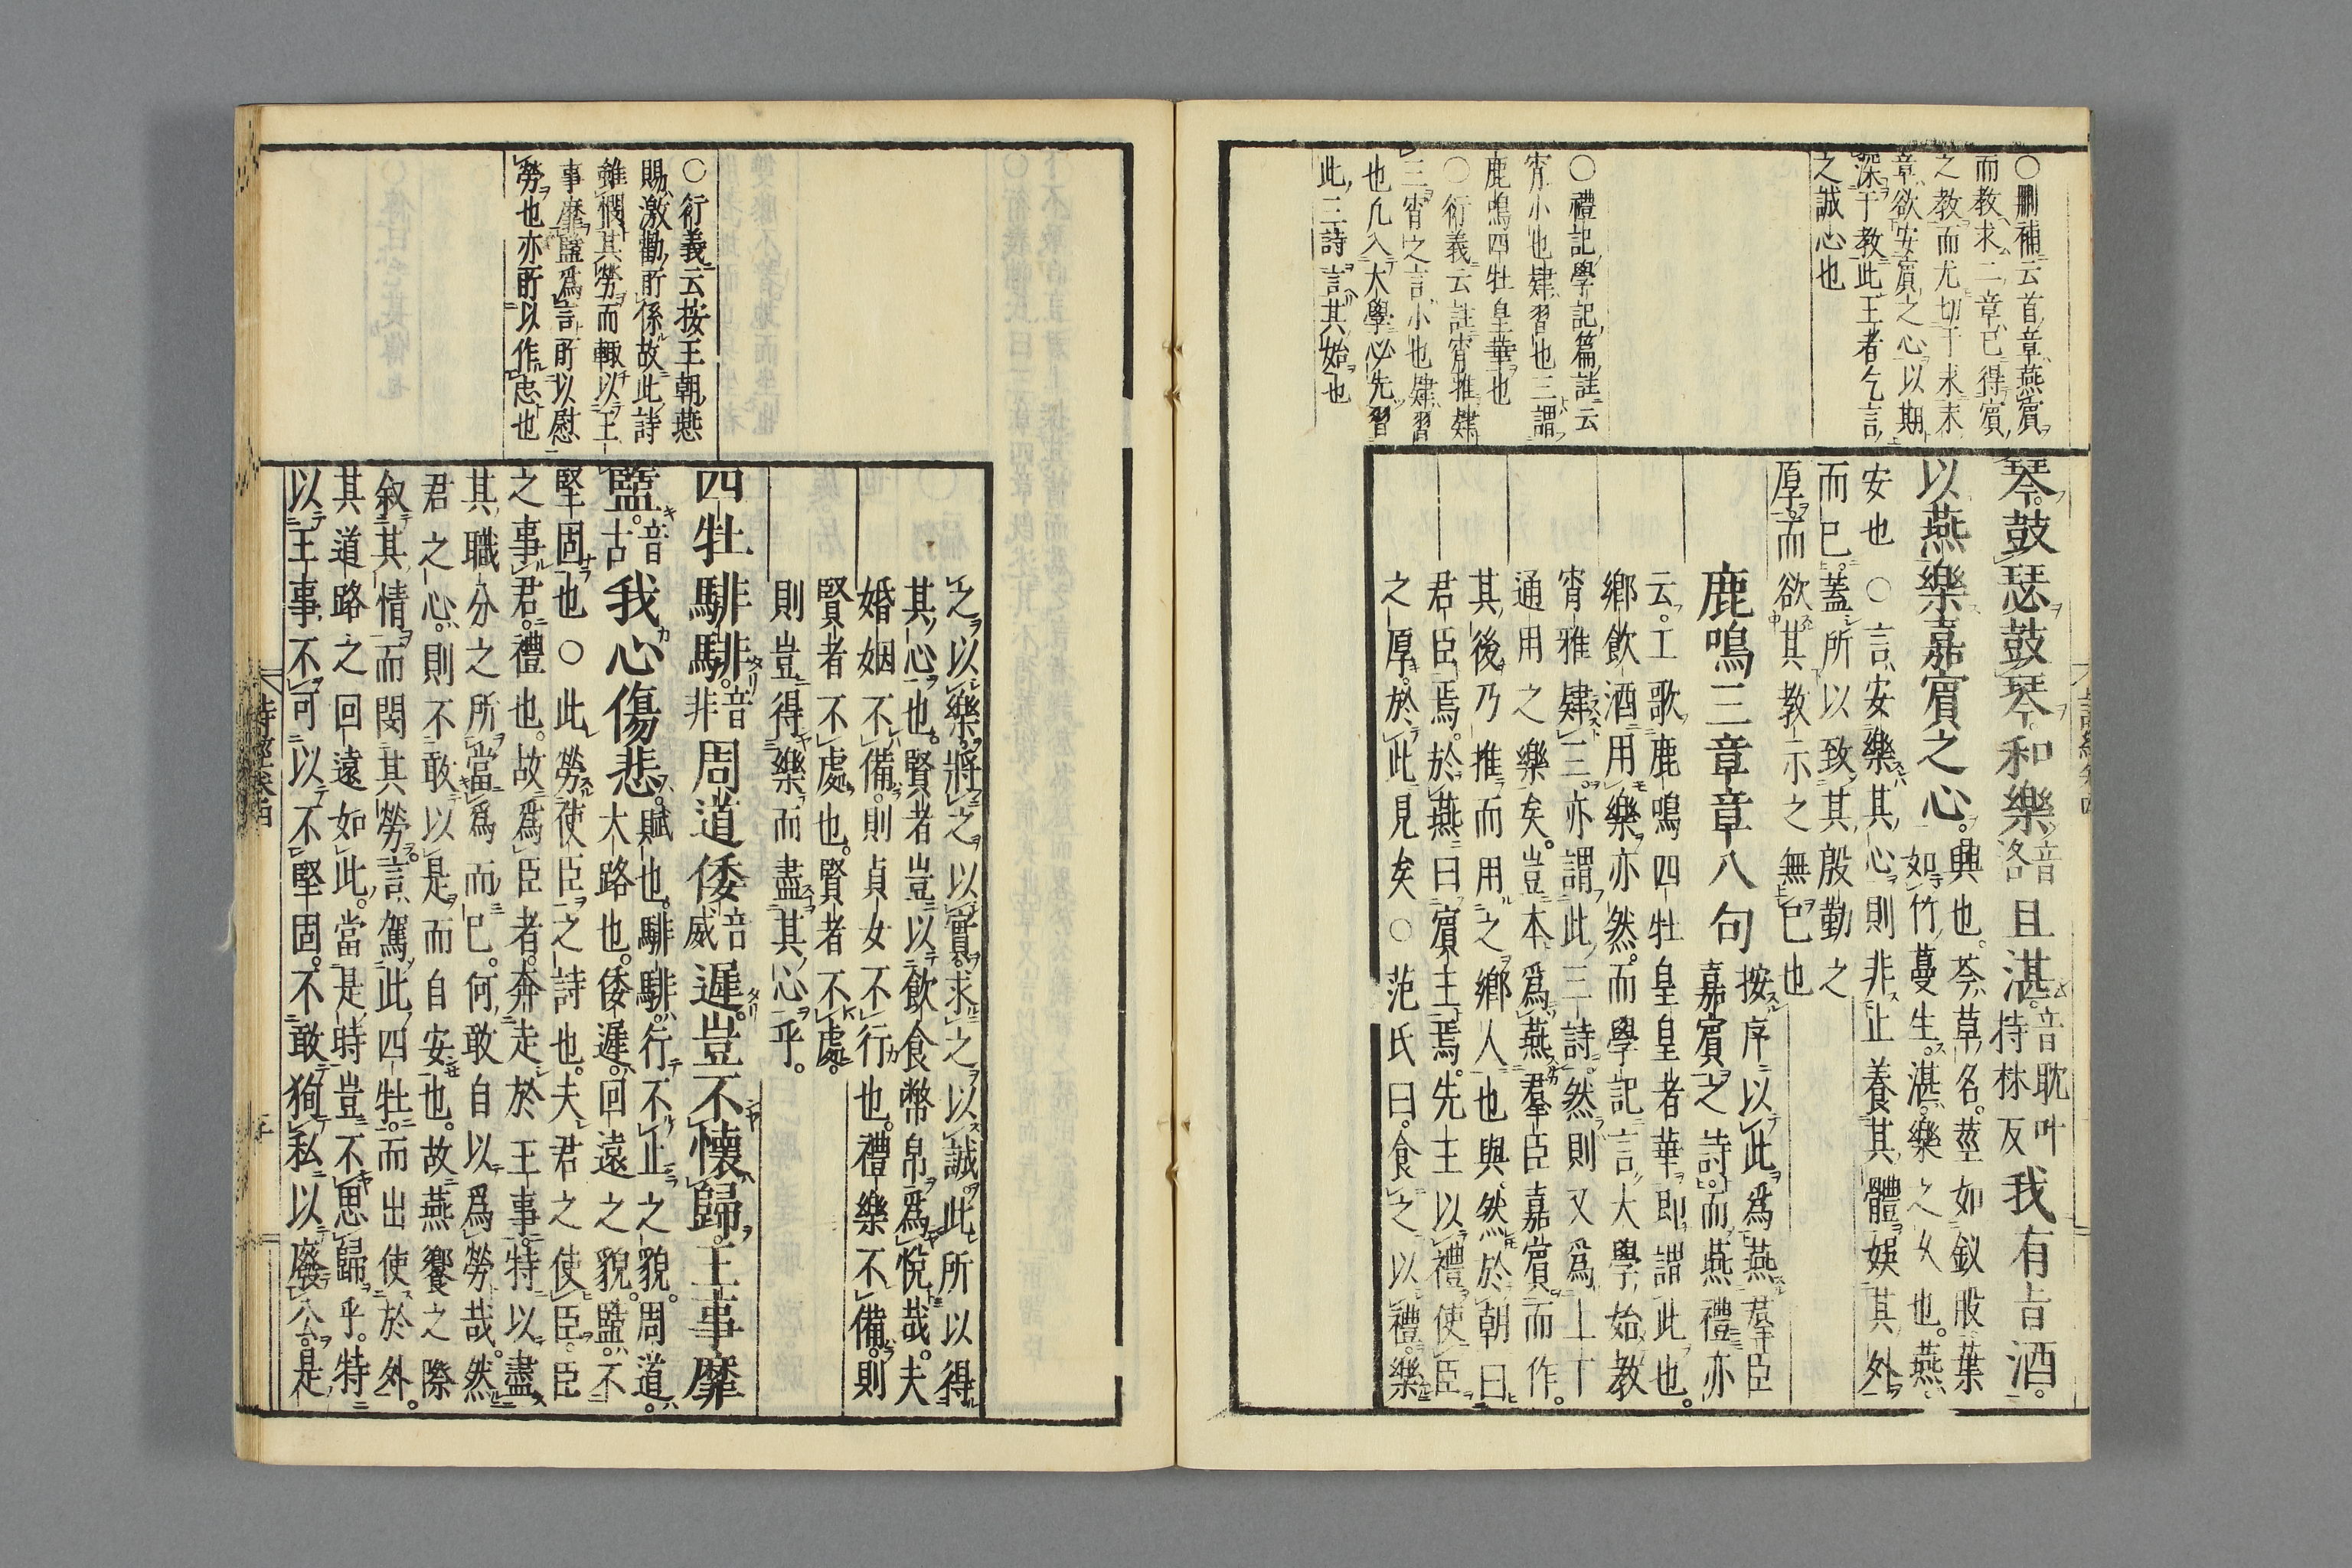 ○刪補云首章燕賓
而教求二章已得賓
之教而尤切于求末
章欲安賓之心以期
深于教此王者乞言
之誠心也
○禮記學記篇註云
宵小也肄習也三謂
鹿鳴四牡皇華也
○衍義云註宵雅肄
三宵之言小也肄習
也凡入大學必先習
此三詩言其始也
琴。鼓瑟鼓琴。和樂音洛且湛。音耽叶持林反我有旨酒。
以燕樂嘉賓之心。興也。芩草名。莖如釵股葉
如竹蔓生。湛樂之久也。燕
安也○言安樂其心則非止養其體娛其外
而已。蓋所以致其殷勤之
厚。而欲其教示之無已也
鹿鳴三章章八句按序以此爲燕羣臣
嘉賓之詩。而燕禮亦
云。工歌鹿鳴四牡皇皇者華即謂此也。
鄉飲酒用樂亦然。而學記言大學始教
宵雅肄三亦謂此三詩。然則又爲上下
通用之樂矣。豈本爲燕羣臣嘉賓而作。
其後乃推而用之鄉人也與然於朝曰
君臣焉。於燕曰賓主焉。先王以禮使臣
之厚。於此見矣○范氏曰。食之以禮。樂
○衍義云按王朝燕
賜激勸所係故此詩
雖憫其勞而輙以王
事靡盬爲言所以慰
勞也亦所以作忠也
之以樂將之以實。求之以誠。此所以得
其心也。賢者豈以飲食幣帛爲悅哉。夫
婚姻不備。則貞女不行也。禮樂不備。則
賢者不處也。賢者不處。
則豈得樂而盡其心乎。
四牡騑騑。音非周道倭音威遲。豈不懷歸。王事靡
盬。音古我心傷悲。賦也。騑騑。行不止之貌。周道。
大路也。倭遲。回遠之貌。盬。不
堅固也○此勞使臣之詩也。夫君之使臣。臣
之事君。禮也。故爲臣者。奔走於王事。特以盡
其職分之所當爲而已。何敢自以爲勞哉。然
君之心。則不敢以是而自安也。故燕饗之際
叙其情而閔其勞。言駕此四牡。而出使於外。
其道路之回遠如此。當是時豈不思歸乎。特
以王事不可以不堅固。不敢狥私以廢公。是
詩經卷四